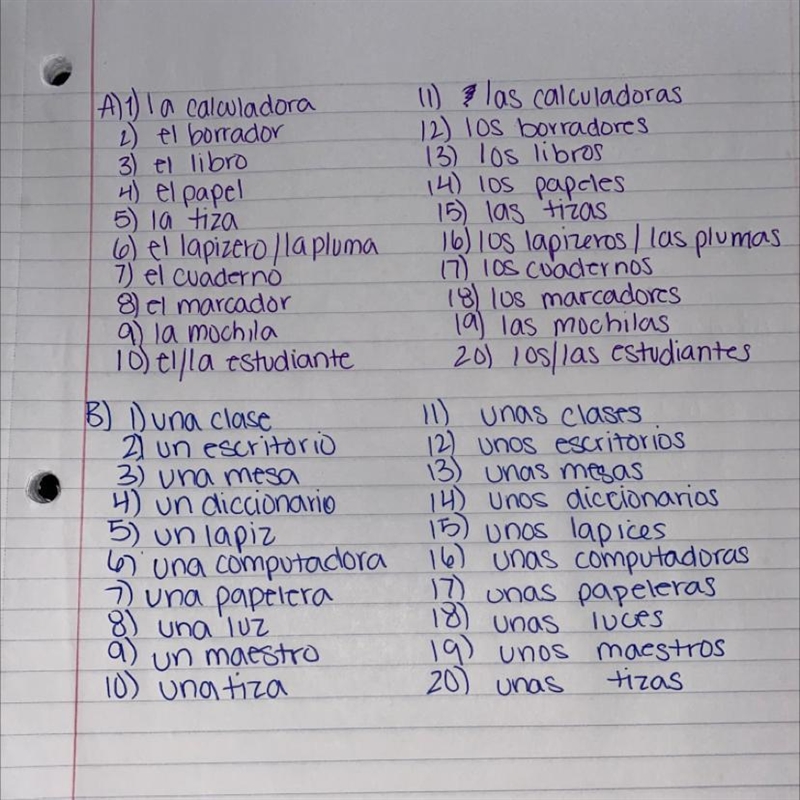 A) 1) la calculadora 11) las calculadoras
2) el borrador 12) los borradores
3) el libro 13) los libros
4) el papel 14) los papeles
5) la tiza 15) las tizas
6) el lapizero/la pluma 16) los lapizeros/las plumas
7) el cuaderno 17) los cuadernos
8) el marcador 18) los marcadores
9) la mochila 19) las mochilas
10) el/la estudiante 20) los/las estudiantes
B) 1) una clase 11) unas clases
2) un escritorio 12) unos escritorios
3) una mesa 13) unas mesas
4) un diccionario 14) unos diccionarios
5) un lapiz 15) unos lapices
6) una computadora 16) unas computadoras
7) una papelera 17) unas papeleras
8) una luz 18) unas luces
9) un maestro 19) unos maestros
10) una tiza 20) unas tizas